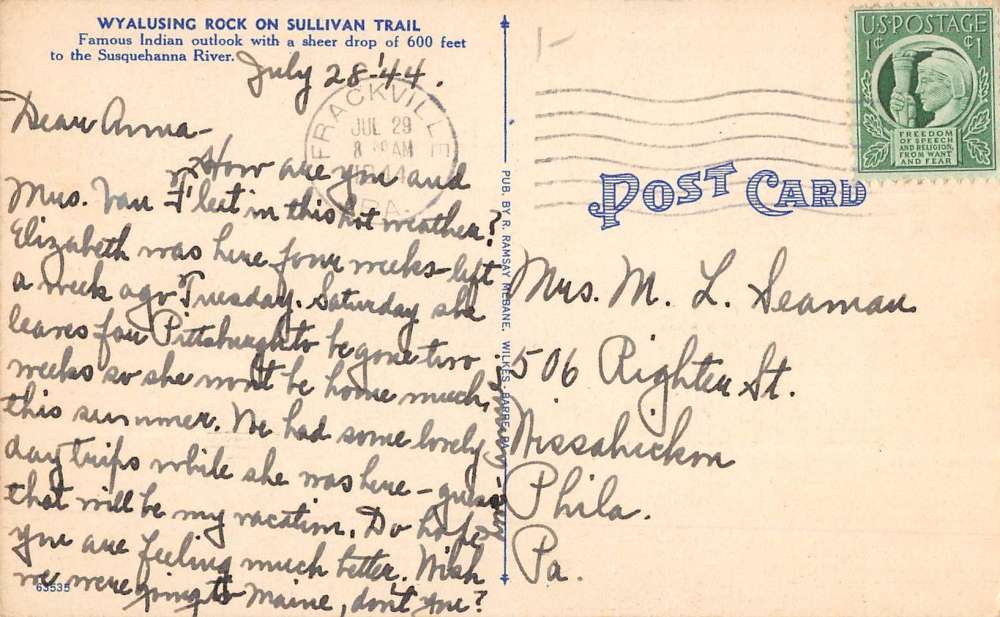 WYALUSING ROCK ON SULLIVAN TRAIL
Famous Indian outlook with a sheer drop of 600 feet
to the Susquehanna River.
July 28-'44.
Dear Anna-
How are you and
Mrs. Van F'leit in this hot weather?
Elizabeth was here four weeks-left
a week ago Tuesday. Saturday she
leaves for Pittsburgh to be gone two
weeks so she won't be home much
this summer. We had some lovely
day trips while she was here - guess
that will be my vacation. Do hope
you are feeling much better. Wish
we were going to Maine, don't you?
63535
FRACKVILLE
JUL 29
8 AM
1944
PA.
PUB. BY R. RAMSAY MEBANE, WILKES-BARRE, PA.
U.S. POSTAGE
1¢ ¢1
FREEDOM
OF SPEECH
AND RELIGION,
FROM WANT
AND FEAR
POST CARD
Mrs. M. L. Seaman
506 Righter St.
Wissahickon
Phila.
Pa.